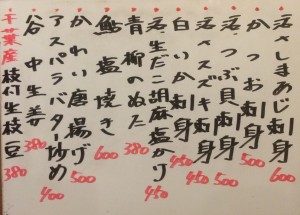 活しまあじ刺身 600
かつお刺身 500
活つぶ貝刺身 500
活スズキ刺身 450
白いか刺身 450
活生だこ胡麻塩かけ 450
青柳のぬた 380
鮎塩焼き 600
かれい唐揚げ 500
アスパラバター炒め 400
谷中生姜 380
千葉産枝付生枝豆 380